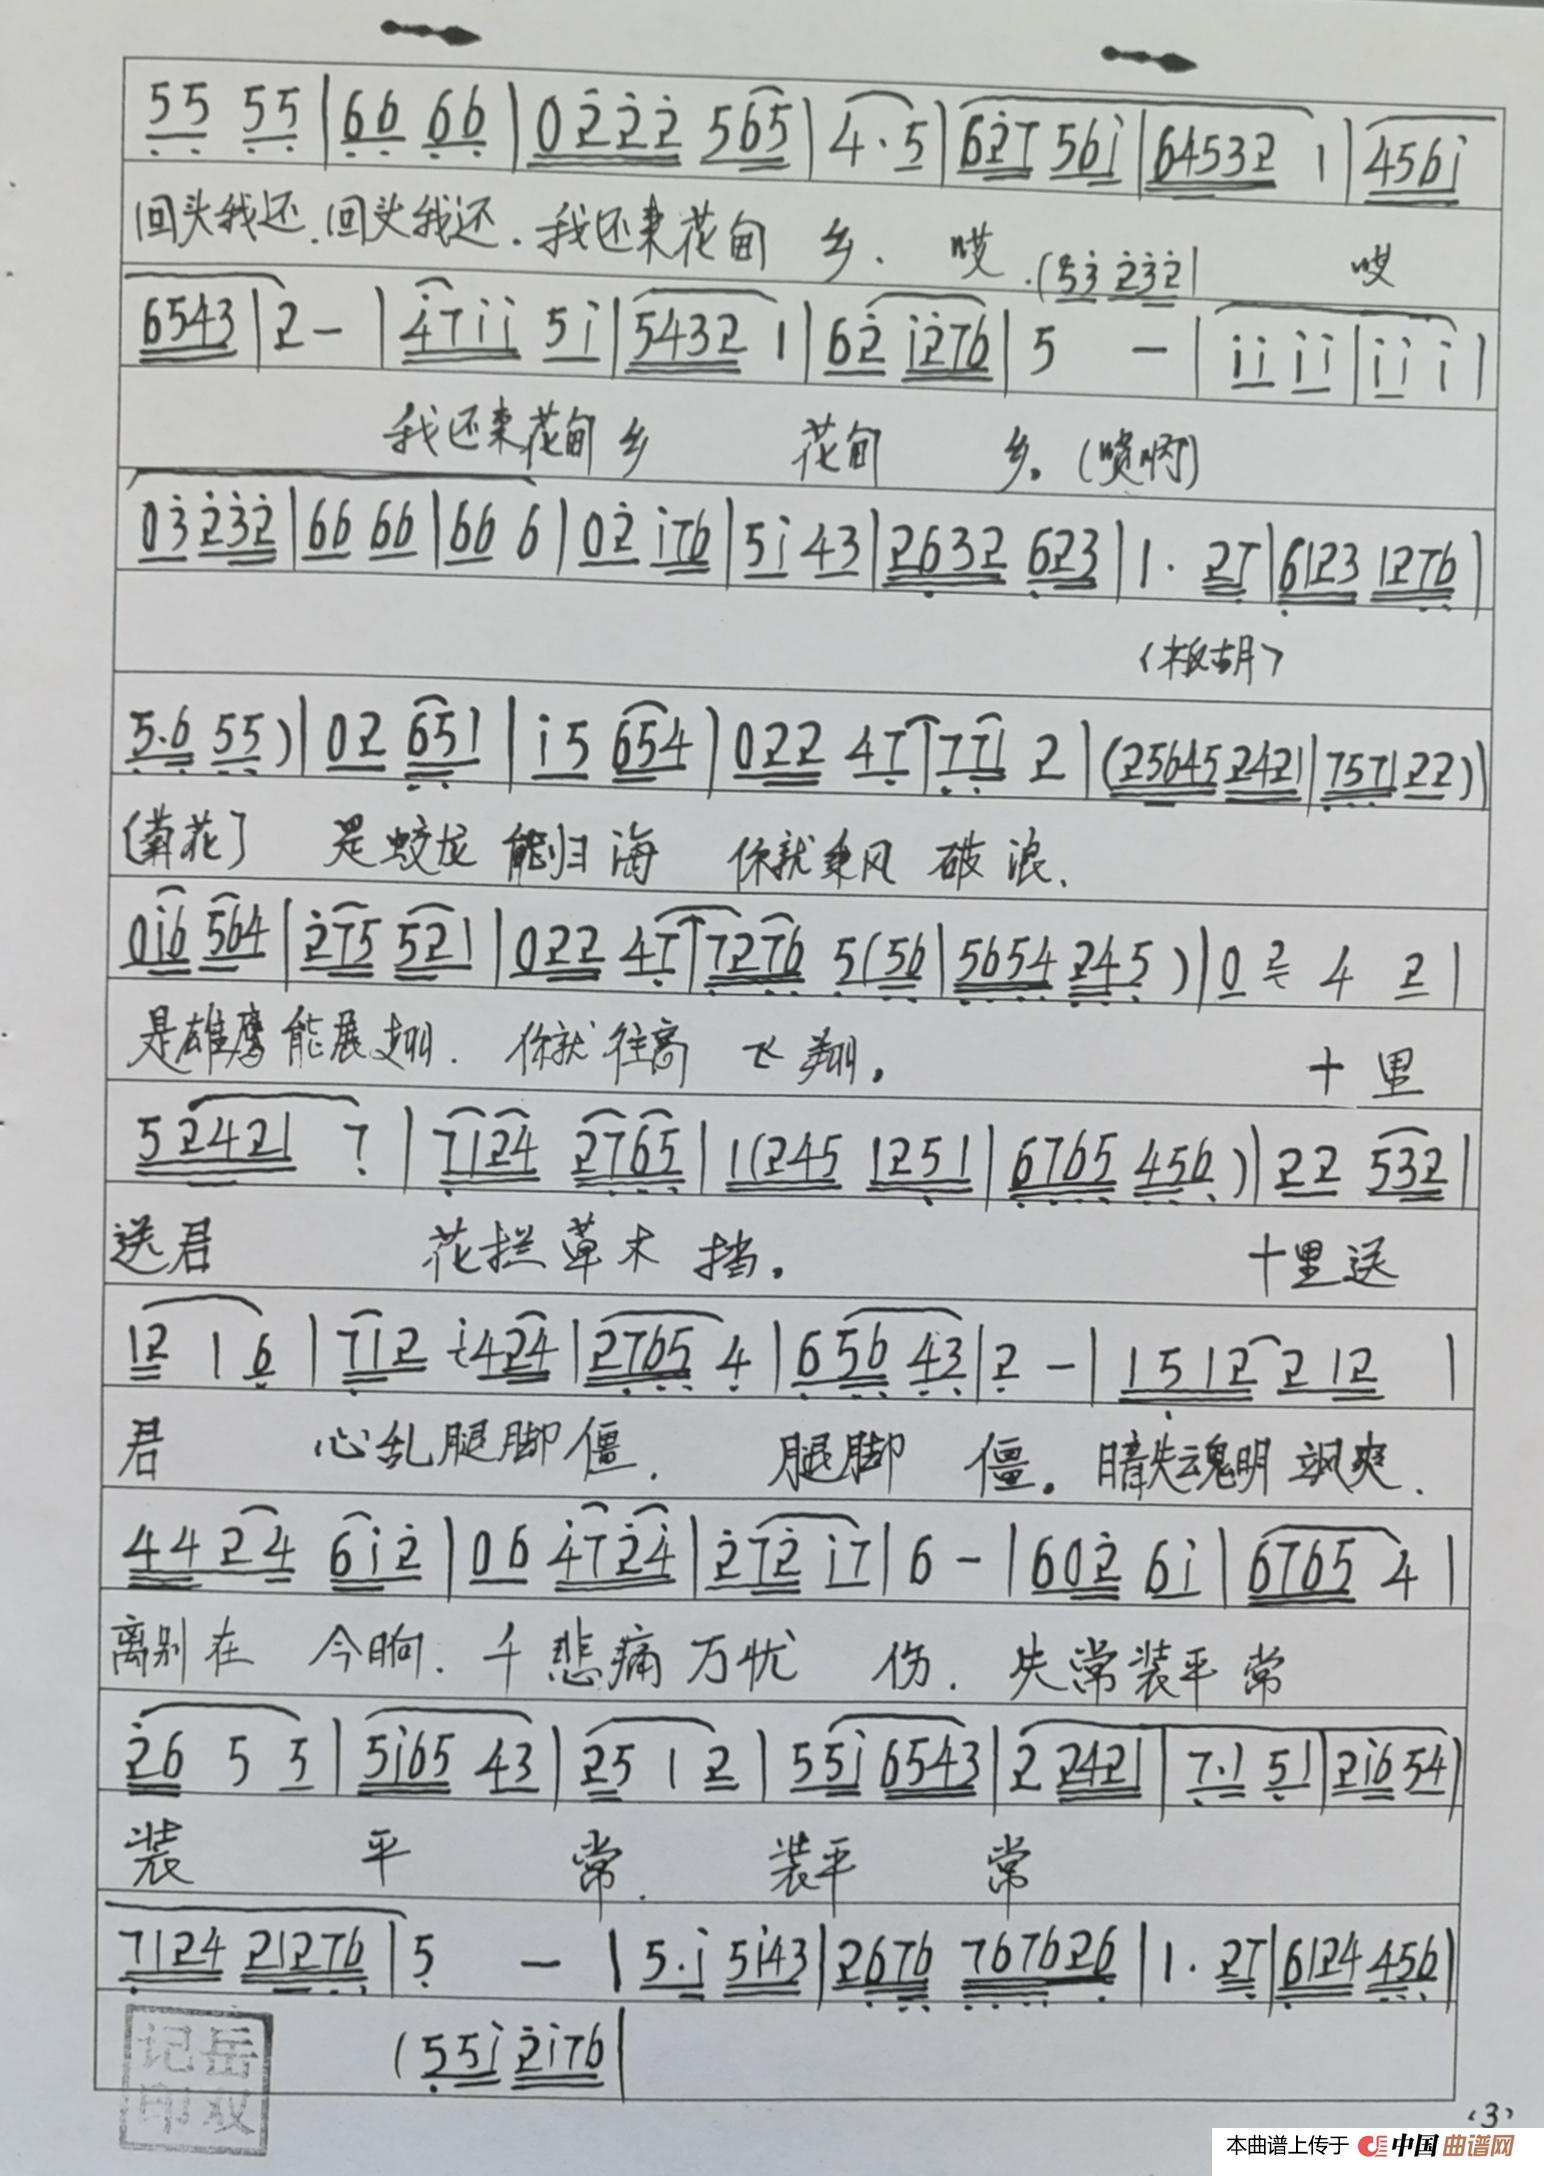 55 55 | 66 66 | 0222 565 | 4·5 | 627 561 | 64532 1 | 4561
回头我还.回头我还.我还来花甸 乡. 哎 .(53 232| 哎
6543 | 2 - | 4711 51 | 5432 1 | 62 1276 | 5 - | 11 11 | 11 1 |
我还来花甸乡 花甸 乡.(唢呐)
03 232 | 66 66 | 66 6 | 02 176 | 51 43 | 2632 623 | 1· 27 | 6123 1276 |
〈板胡〉
5·6 55) | 02 651 | 15 654 | 022 47 | 771 2 | (25645 2421 | 7571 22) |
[菊花] 是蛟龙能归海 你就乘风破浪、
016 564 | 275 521 | 022 47 | 7276 5(56 | 5654 245) | 0 2 4 2 |
是雄鹰能展翅. 你就往高飞翔. 十里
52421 7 | 7124 2765 | 1(245 1251 | 6765 456) | 22 532 |
送君 花拦草木挡. 十里送
12 1 6 | 712 1424 | 2765 4 | 656 43 | 2 - | 1512 212 |
君 心乱腿脚僵. 腿脚 僵. 暗失魂明飒爽.
44 24 612 | 06 4724 | 272 17 | 6 - | 602 61 | 6765 4 |
离别在 今晌. 千悲痛万忧 伤. 失常装平常
26 5 5 | 5165 43 | 25 1 2 | 551 6543 | 2 2421 | 7·1 51 | 216 54 |
装 平 常. 装平 常
7124 21276 | 5 - | 5·1 5143 | 2676 767626 | 1· 27 | 6124 456 |
(551 2176 |
岳双记印
(3)
本曲谱上传于 中国曲谱网